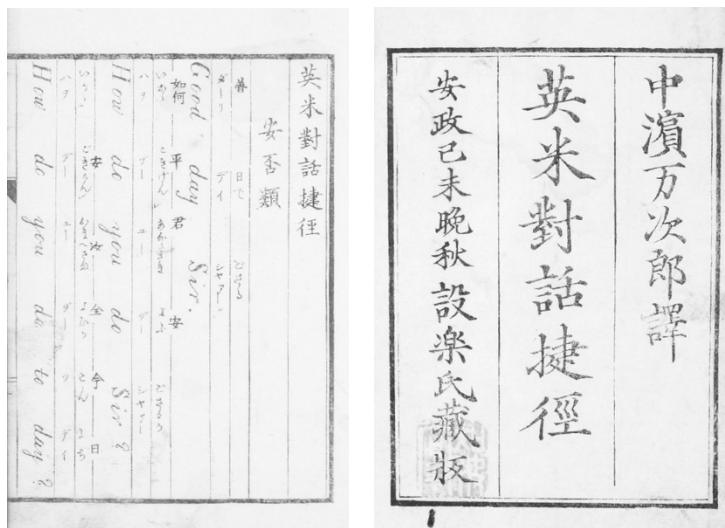 中濱万次郎譯
英米對話捷徑
安政己未晩秋 設楽氏藏版
英米對話捷徑
安否類
善 日で ござる
グーリ デイ シヤアー
Good day Sir.
如何 平 君 安
ごきげん
ハヲ デー ユー デー シヤアー
How do you do Sir?
安 汝 全 今 日
ごきげん こん にち
ハヲ デー ユー デー ツ デイ
How do you do to day?